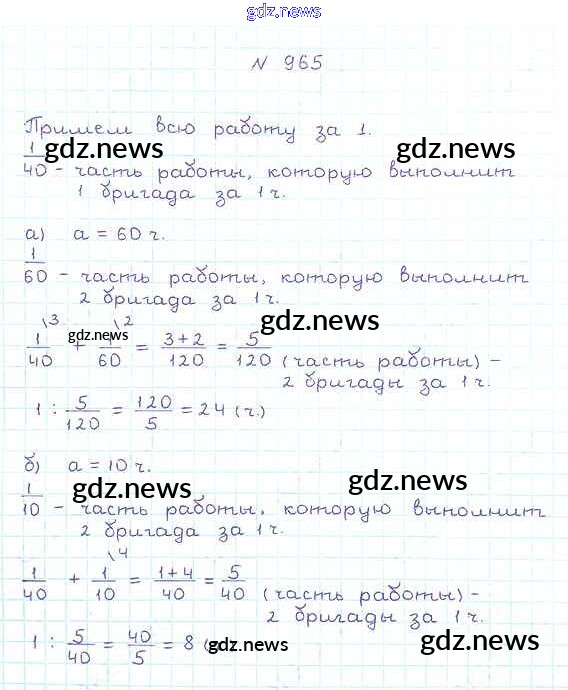 gdz.news
N 965
Примем всю работу за 1.
gdz.news gdz.news
1/40 - часть работы, которую выполнит
1 бригада за 1 ч.
а) a = 60 ч.
1/60 - часть работы, которую выполнит
2 бригада за 1 ч.
gdz.news
gdz.news
1/40 \3 + 1/60 \2 = 3+2/120 = 5/120 (часть работы) -
2 бригады за 1 ч.
1 : 5/120 = 120/5 = 24 (ч.)
б) a = 10 ч.
gdz.news gdz.news
1/10 - часть работы, которую выполнит
2 бригада за 1 ч.
1/40 + 1/10 \4 = 1+4/40 = 5/40 (часть работы) -
2 бригады за 1 ч.
1 : 5/40 = 40/5 = 8 (
gdz.news gdz.news